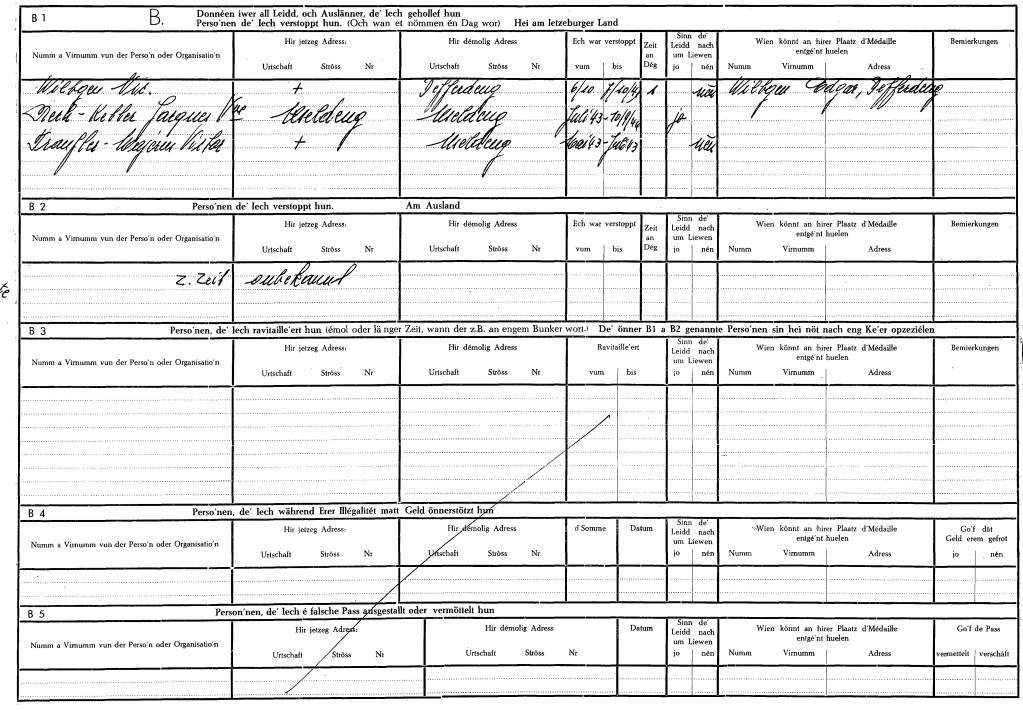 B 1 B. Donnéen iwer all Leidd, och Auslänner, de' Iech gehollef hun
Perso'nen de' Iech verstoppt hun. (Och wan et nömmen én Dag wor) Hei am letzeburger Land
Numm a Virnumm vun der Perso'n oder Organisatio'n
Hir jetzeg Adress:
Urtschaft Ströss Nr
Hir démolig Adress
Urtschaft Ströss Nr
Ech war verstoppt
vum bis
Zeit an Dég
Sinn de' Leidd nach um Liewen
jo nén
Wien könnt an hirer Plaatz d'Médaille entgé'nt huelen
Numm Virnumm Adress
Bemierkungen
Wilbger Nic. + Defferdeng 6/10 1 nén Wilbger Edgar, Defferdeng
Useldeng Useldeng Juli 43 - jo
+ Useldeng Mai 43 - Juli 43 nén
B 2 Perso'nen de' Iech verstoppt hun. Am Ausland
Numm a Virnumm vun der Perso'n oder Organisatio'n
Hir jetzeg Adress:
Urtschaft Ströss Nr
Hir démolig Adress
Urtschaft Ströss Nr
Ech war verstoppt
vum bis
Zeit an Dég
Sinn de' Leidd nach um Liewen
jo nén
Wien könnt an hirer Plaatz d'Médaille entgé'nt huelen
Numm Virnumm Adress
Bemierkungen
z. Zeit onbekannt
B 3 Perso'nen, de' Iech ravitaille'ert hun (émol oder lä nger Zeit, wann der z.B. an engem Bunker wort.) De' önner B1 a B2 genannte Perso'nen sin hei nöt nach eng Ke'er opzeziélen
Numm a Virnumm vun der Perso'n oder Organisatio'n
Hir jetzeg Adress:
Urtschaft Ströss Nr
Hir démolig Adress
Urtschaft Ströss Nr
Ravitaille'ert
vum bis
Sinn de' Leidd nach um Liewen
jo nén
Wien könnt an hirer Plaatz d'Médaille entgé'nt huelen
Numm Virnumm Adress
Bemierkungen
B 4 Perso'nen, de' Iech während Erer Illégalitét matt Geld önnerstötzt hun
Numm a Virnumm vun der Perso'n oder Organisatio'n
Hir jetzeg Adress:
Urtschaft Ströss Nr
Hir démolig Adress
Urtschaft Ströss Nr
d'Somme Datum
Sinn de' Leidd nach um Liewen
jo nén
Wien könnt an hirer Plaatz d'Médaille entgé'nt huelen
Numm Virnumm Adress
Go'f dât Geld erem gefrot
jo nén
B 5 Person'nen, de' Iech é falsche Pass ausgestallt oder vermöttelt hun
Numm a Virnumm vun der Perso'n oder Organisatio'n
Hir jetzeg Adress:
Urtschaft Ströss Nr
Hir démolig Adress
Urtschaft Ströss Nr
Datum
Sinn de' Leidd nach um Liewen
jo nén
Wien könnt an hirer Plaatz d'Médaille entgé'nt huelen
Numm Virnumm Adress
Go'f de Pass
vermettelt verschâft